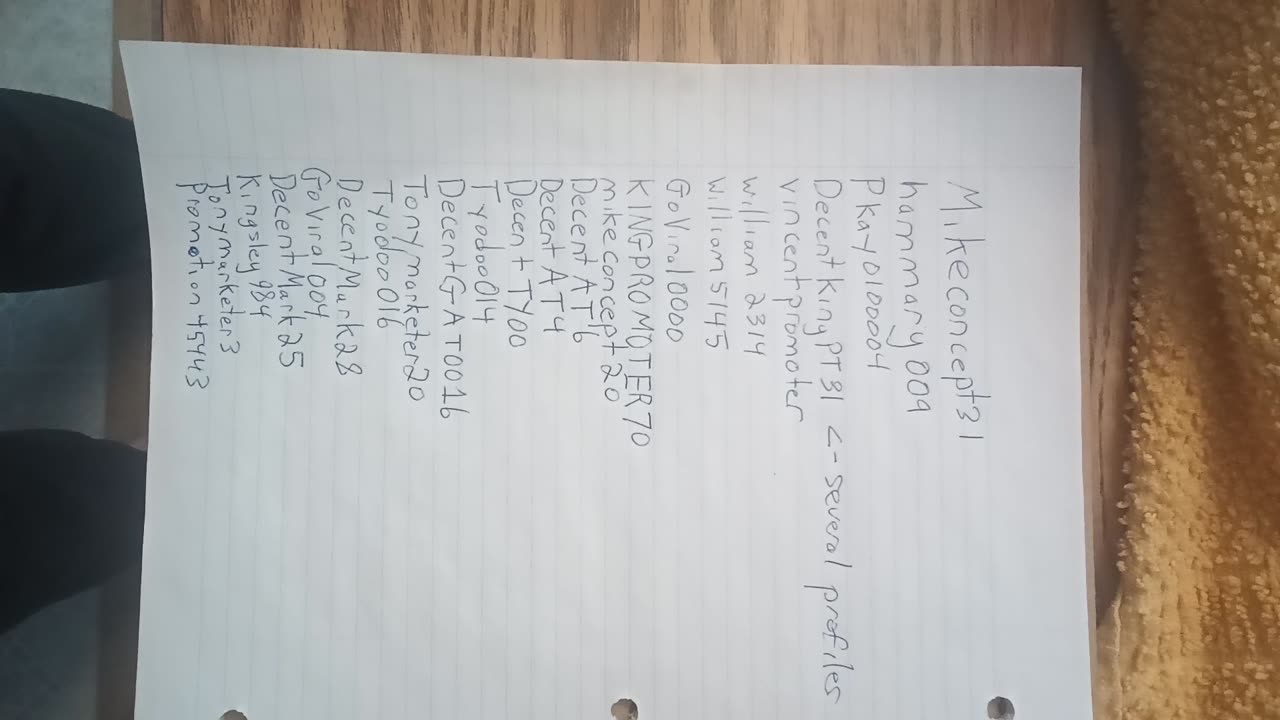 Mikeconcept31
hammary009
Pkay0100004
DecentkingPT31 <- several profiles
vincentpromoter
william 2314
william5145
GoViral0000
KINGPROMOTER70
mikeconcept20
DecentAT6
DecentAT4
DecentTY00
Tyodoo014
DecentGAT0016
Tonymarketer20
Tyodoo016
DecentMark28
GoViral004
DecentMark25
Kingsley984
Tonymarketer3
Promotion45443